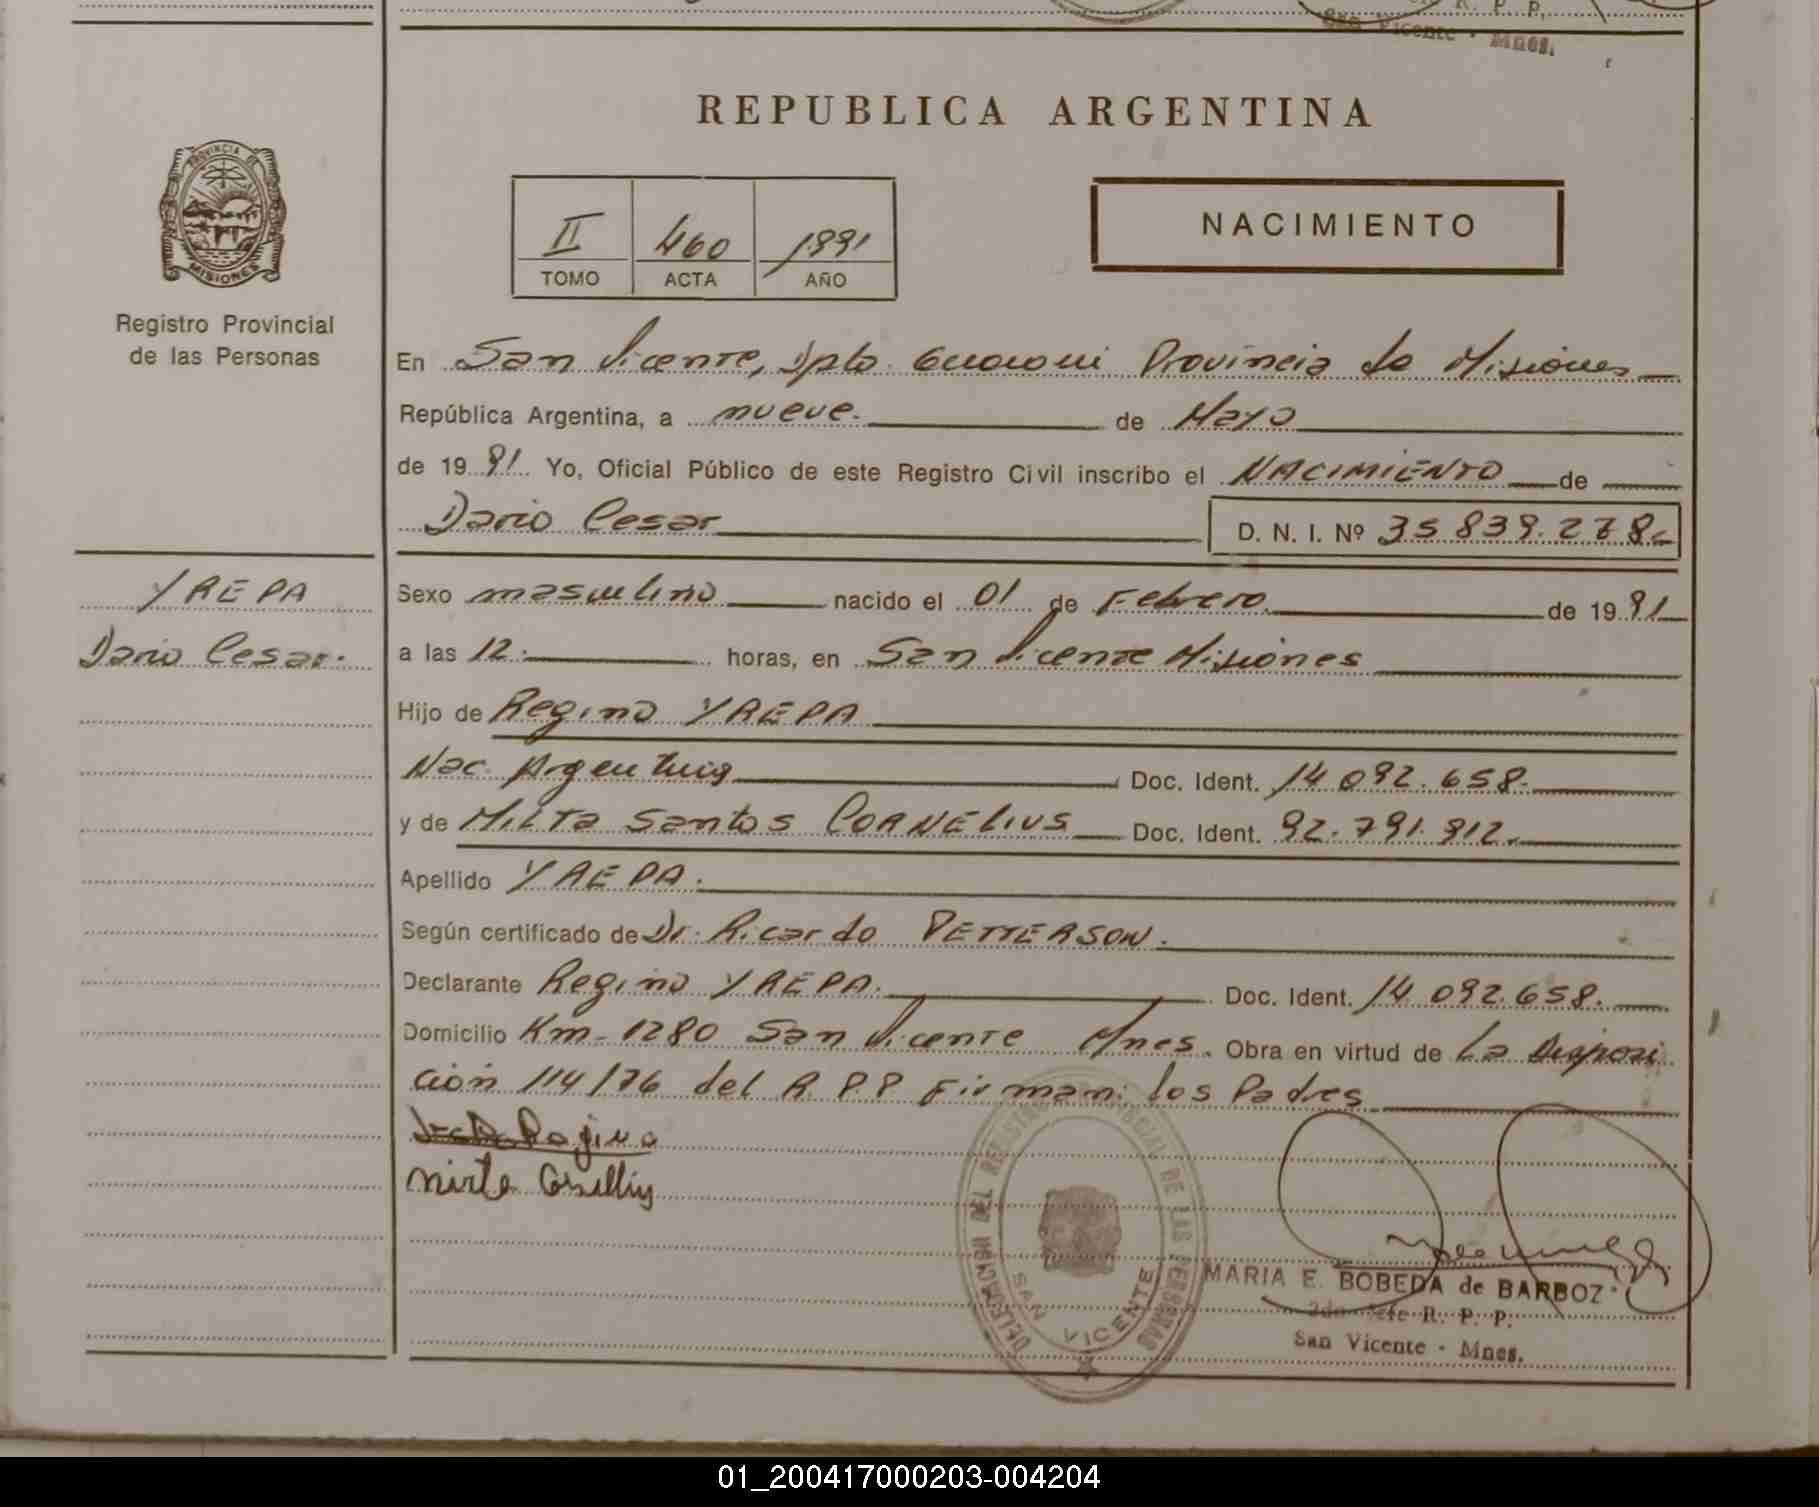 R. P. P.
San Vicente - Mnes.
REPUBLICA ARGENTINA
PROVINCIA DE
MISIONES
II 460 1991
TOMO ACTA AÑO
NACIMIENTO
Registro Provincial
de las Personas
En San Vicente, Dpto Guarani Provincia de Misiones
República Argentina, a nueve. de Mayo
de 1991 Yo, Oficial Público de este Registro Civil inscribo el NACIMIENTO de
Dario Cesar D. N. I. Nº 35 839.278
YREPA
Dario Cesar.
Sexo masculino nacido el 01 de Febrero de 1991
a las 12. horas, en San Vicente Misiones
Hijo de Regino YREPA
Nac. Argentina Doc. Ident. 14 092.658.
y de MILTA Santos CORNELIUS Doc. Ident. 92.791.912.
Apellido YREPA.
Según certificado de Dr. Ricardo PETTERSON.
Declarante Regino YREPA. Doc. Ident. 14 092.658.
Domicilio Km-1280 San Vicente Mnes. Obra en virtud de La Disposi
ción 114/76 del R.P.P Firman: los Padres
DELEGACION DEL REGISTRO PROVINCIAL DE LAS PERSONAS
SAN VICENTE
MARIA E. BOBEDA de BARBOZ
2do Jefe R. P. P.
San Vicente - Mnes.
01_200417000203-004204